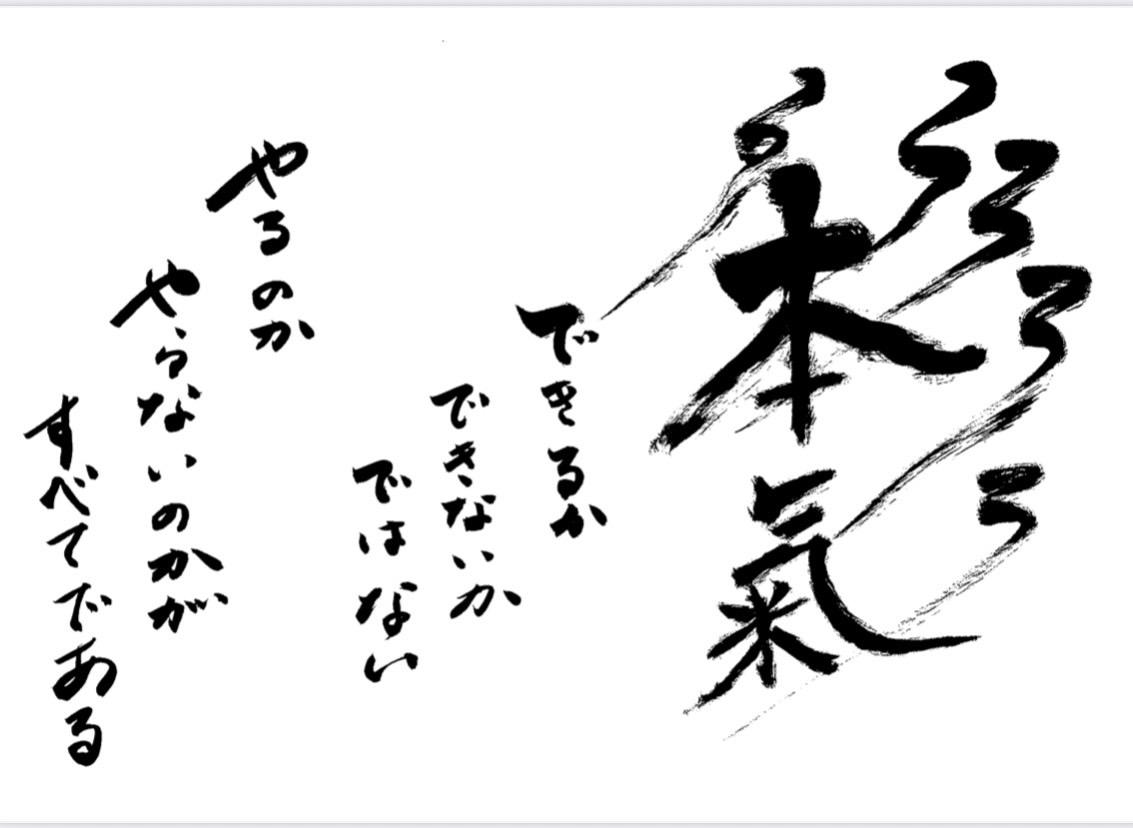 本氣
できるか
できないか
ではない
やるのか
やらないのかが
すべてである